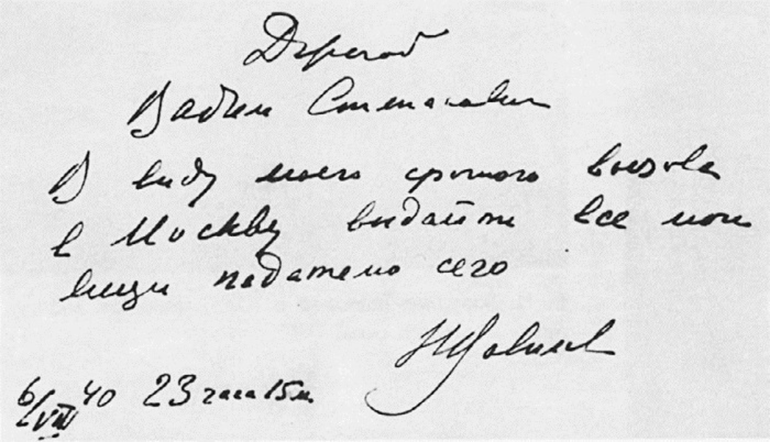 Дорогой
Вадим Степанович
В виду моего срочного вызова
в Москву выдайте все мои
вещи подателю сего
НВавилов
6/VIII 40 23 часа 15 м